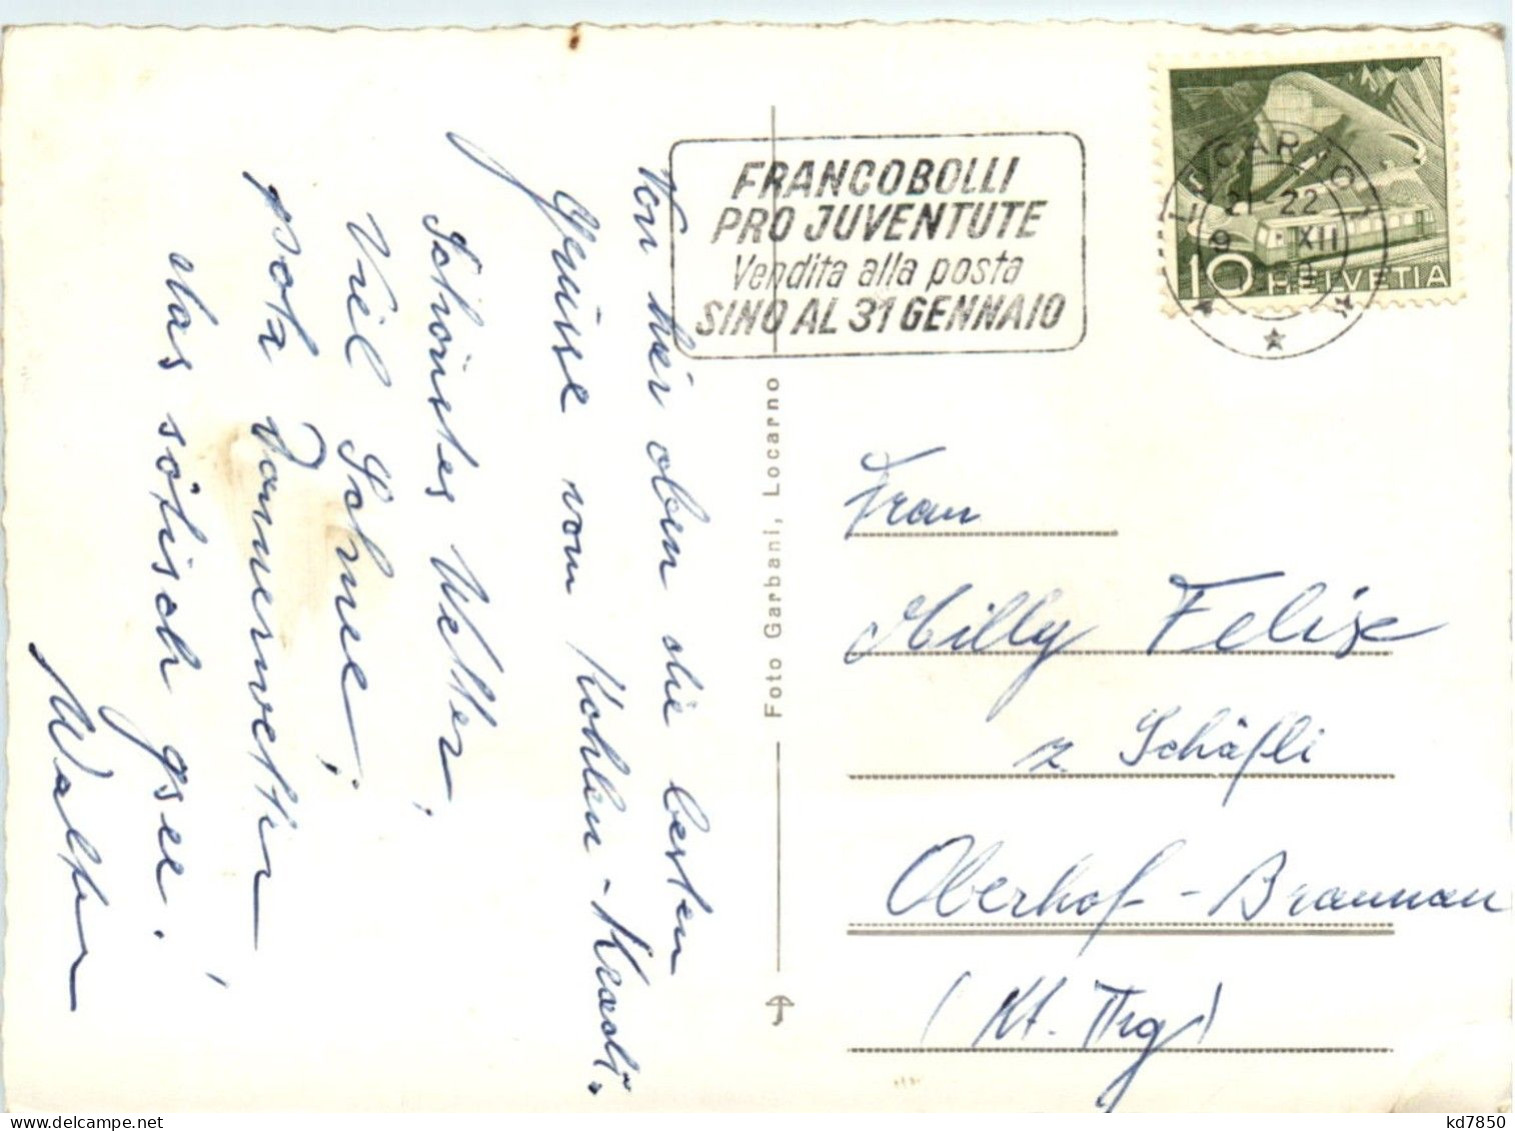 Von hier oben die besten
Grüsse vom Kohlen-Kradi.
Schönstes Wetter,
Viel Schnee,
potz Donnerwetter
das söttisch gsee!
Walter
FRANCOBOLLI
PRO JUVENTUTE
Vendita alla posta
SINO AL 31 GENNAIO
LOCARNO 1
21-22
9 XII
10 HELVETIA
Foto Garbani, Locarno
Frau
Milly Felix
z. Schäfli
Oberhof-Braunau
(Kt. Thg)
kd7850